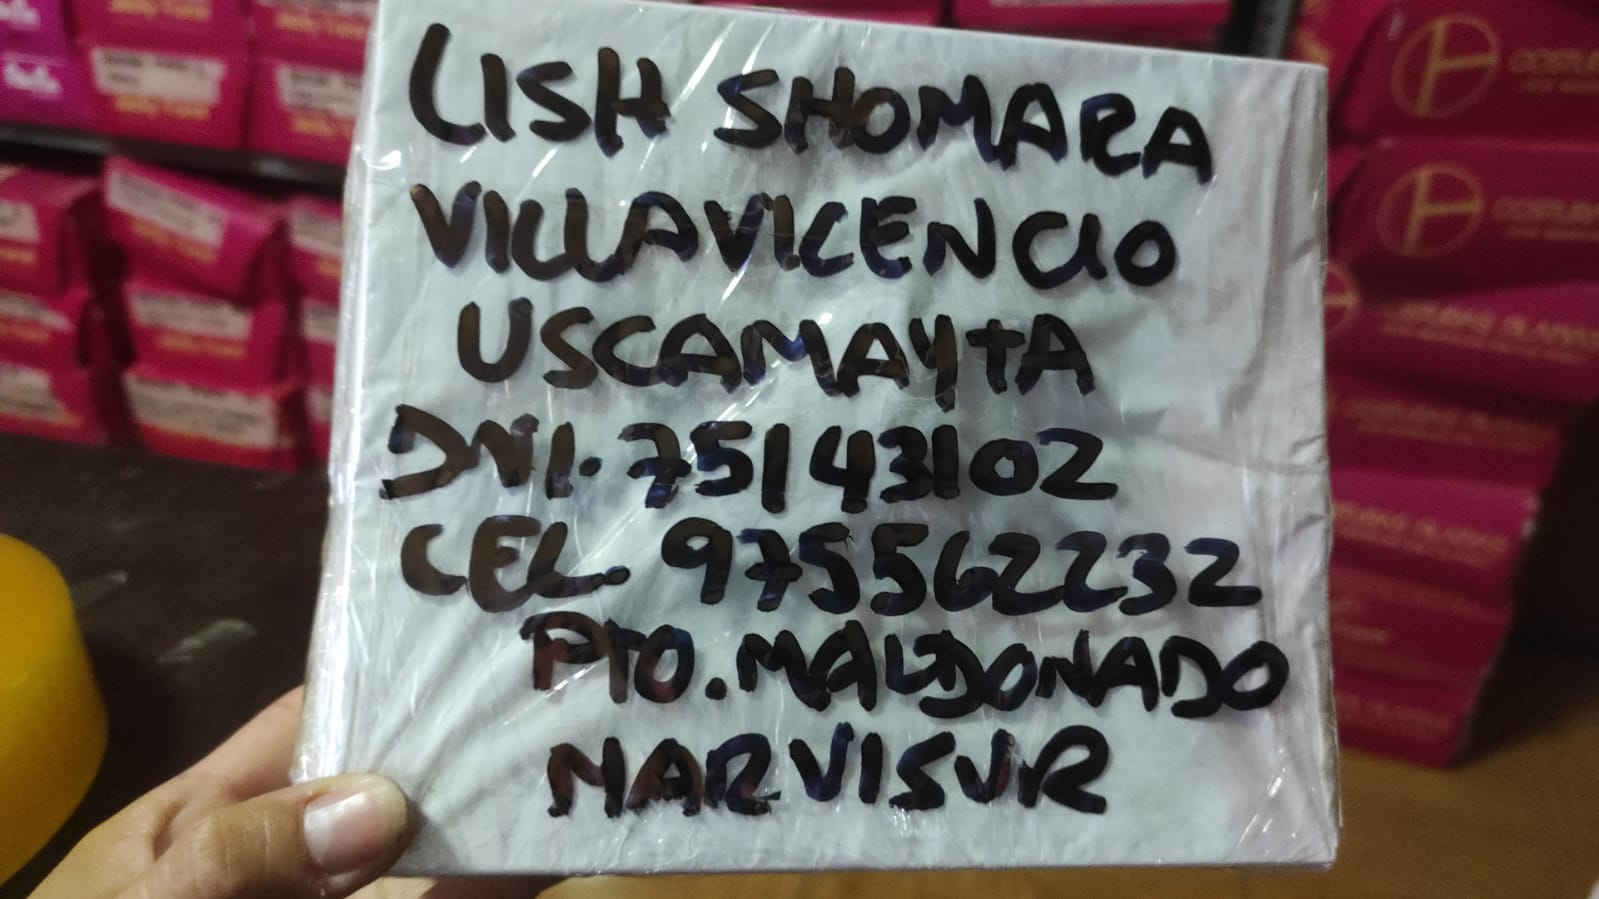 LISH SHOMARA
VILLAVICENCIO
USCAMAYTA
DNI. 75143102
CEL. 975562232
PTO. MALDONADO
MARVISUR